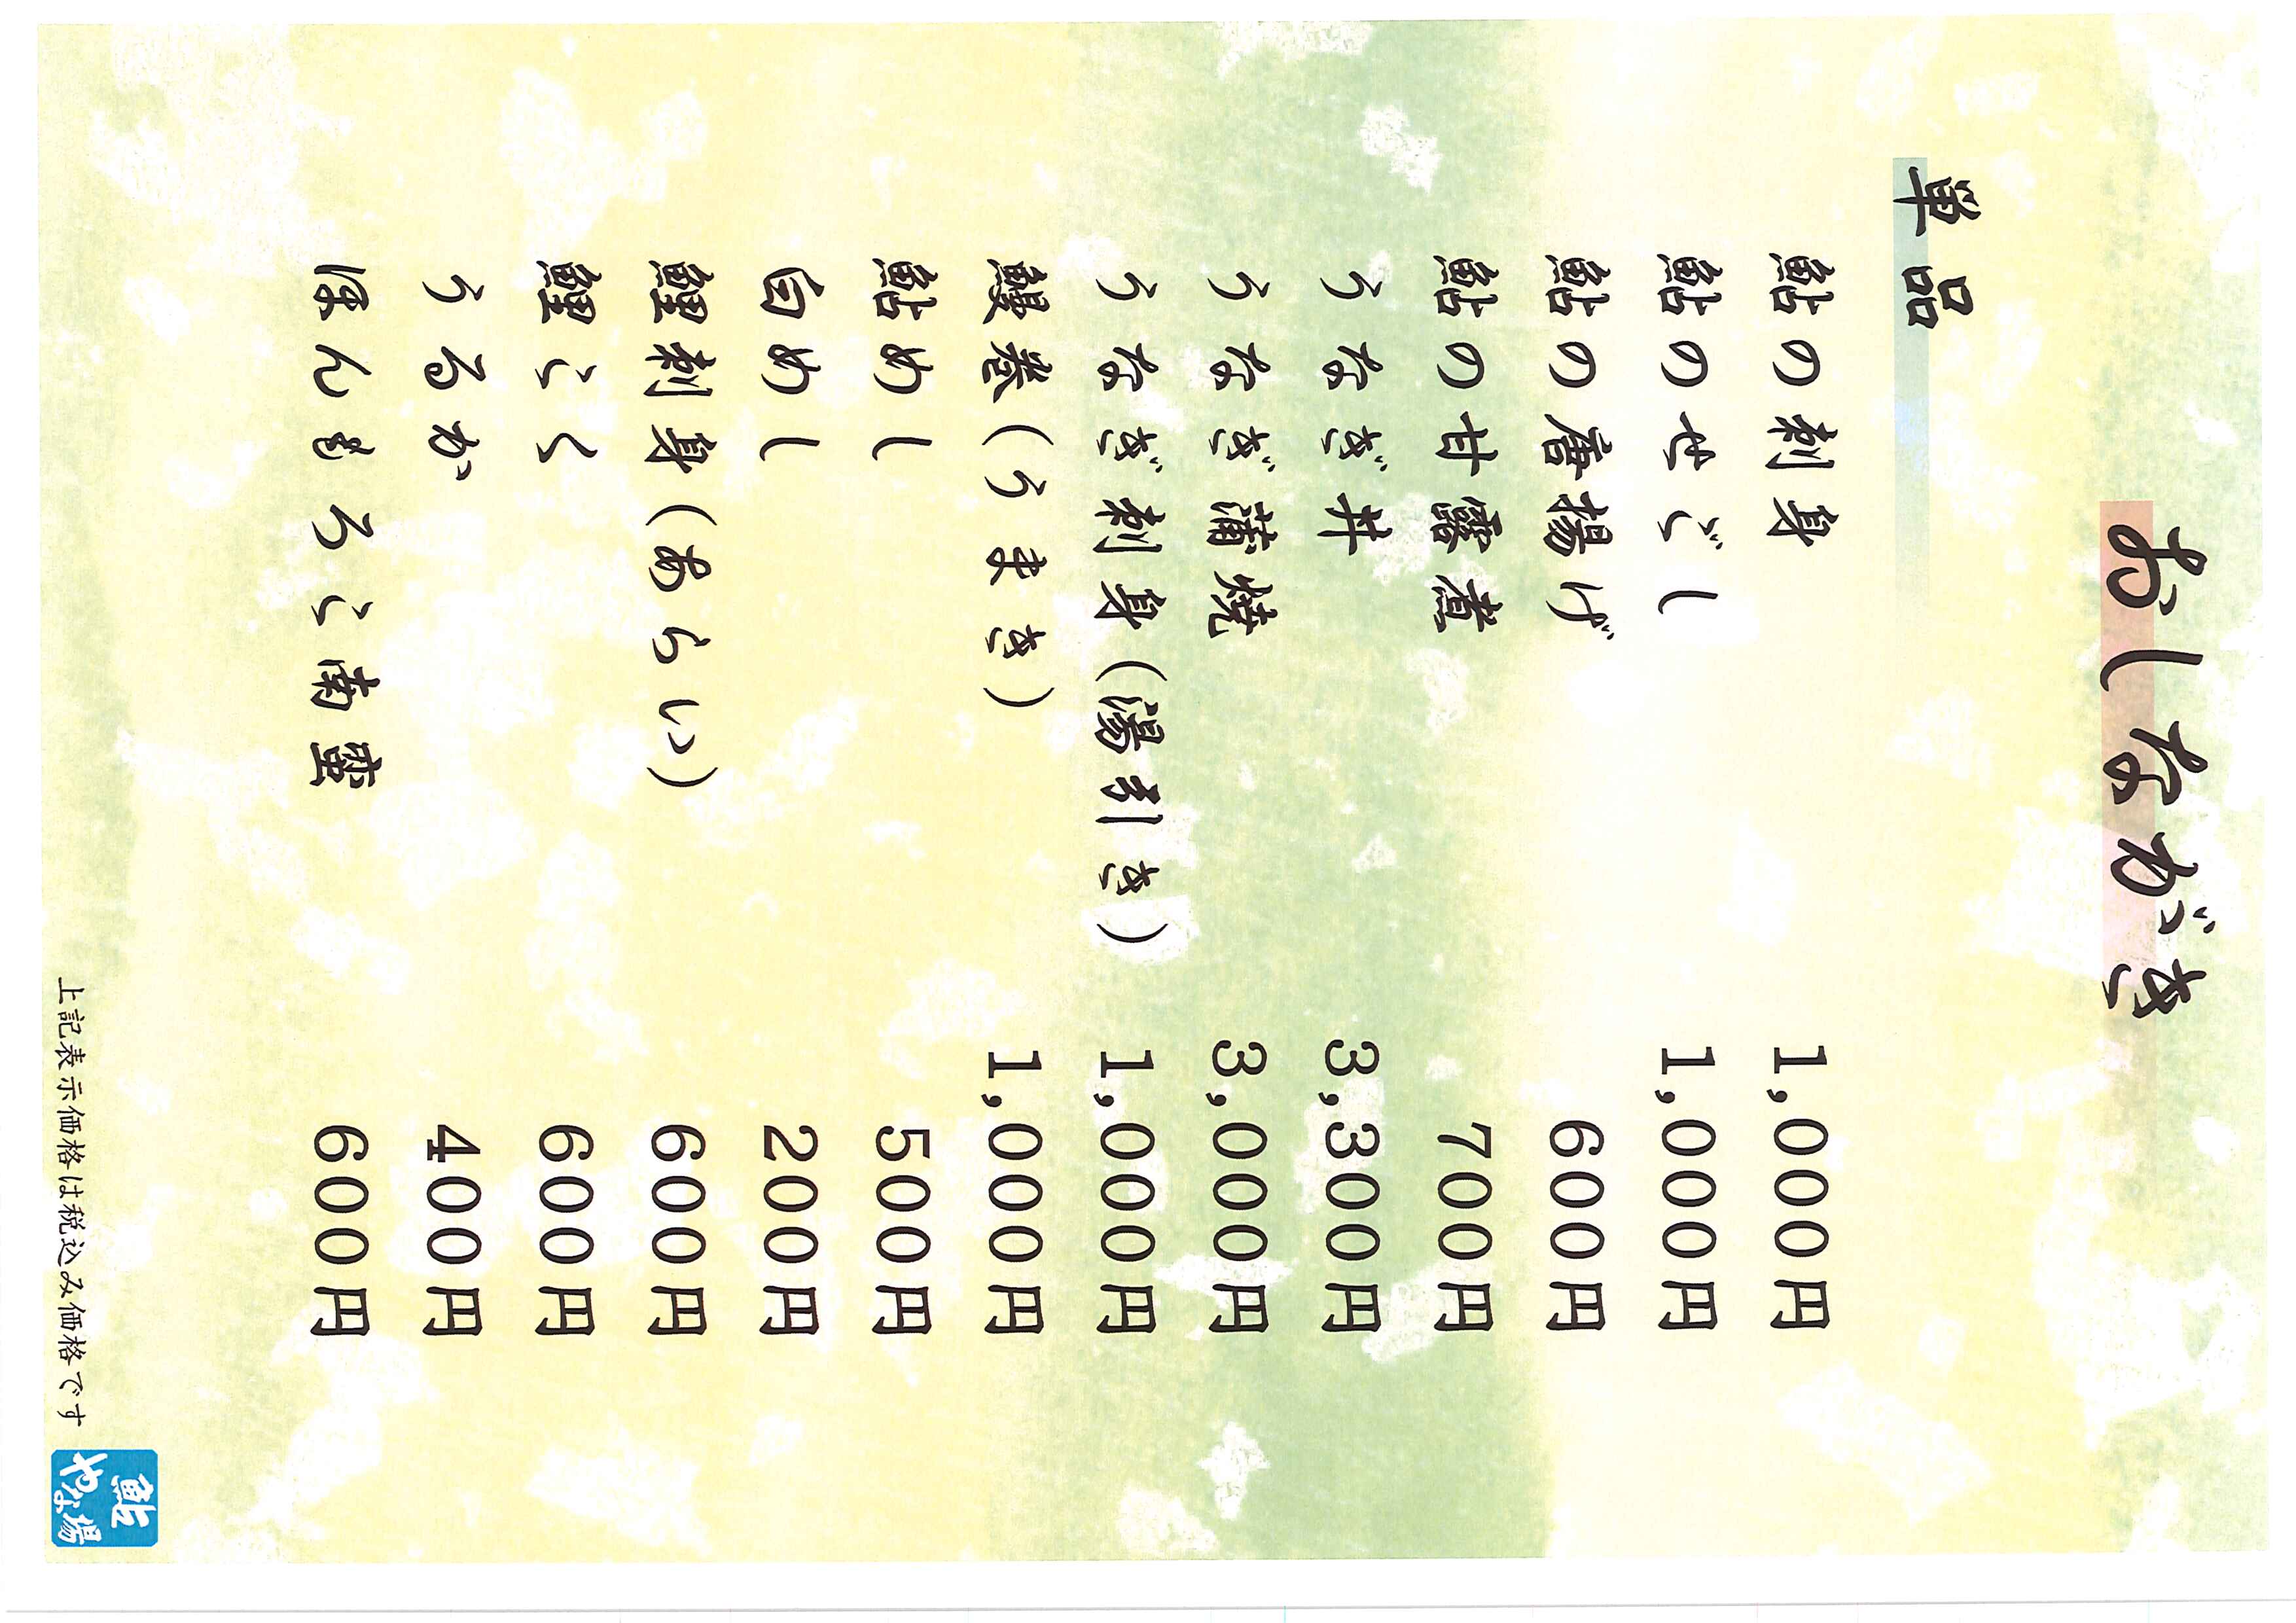 おしながき
単品
鮎の刺身 1,000円
鮎のせごし 1,000円
鮎の唐揚げ 600円
鮎の甘露煮 700円
うなぎ丼 3,300円
うなぎ蒲焼 3,000円
うなぎ刺身(湯引き) 1,000円
鰻巻(うまき) 1,000円
鮎めし 500円
白めし 200円
鯉刺身(あらい) 600円
鯉こく 600円
うるか 400円
ほんもろこ南蛮 600円
上記表示価格は税込み価格です
鮎
やな場